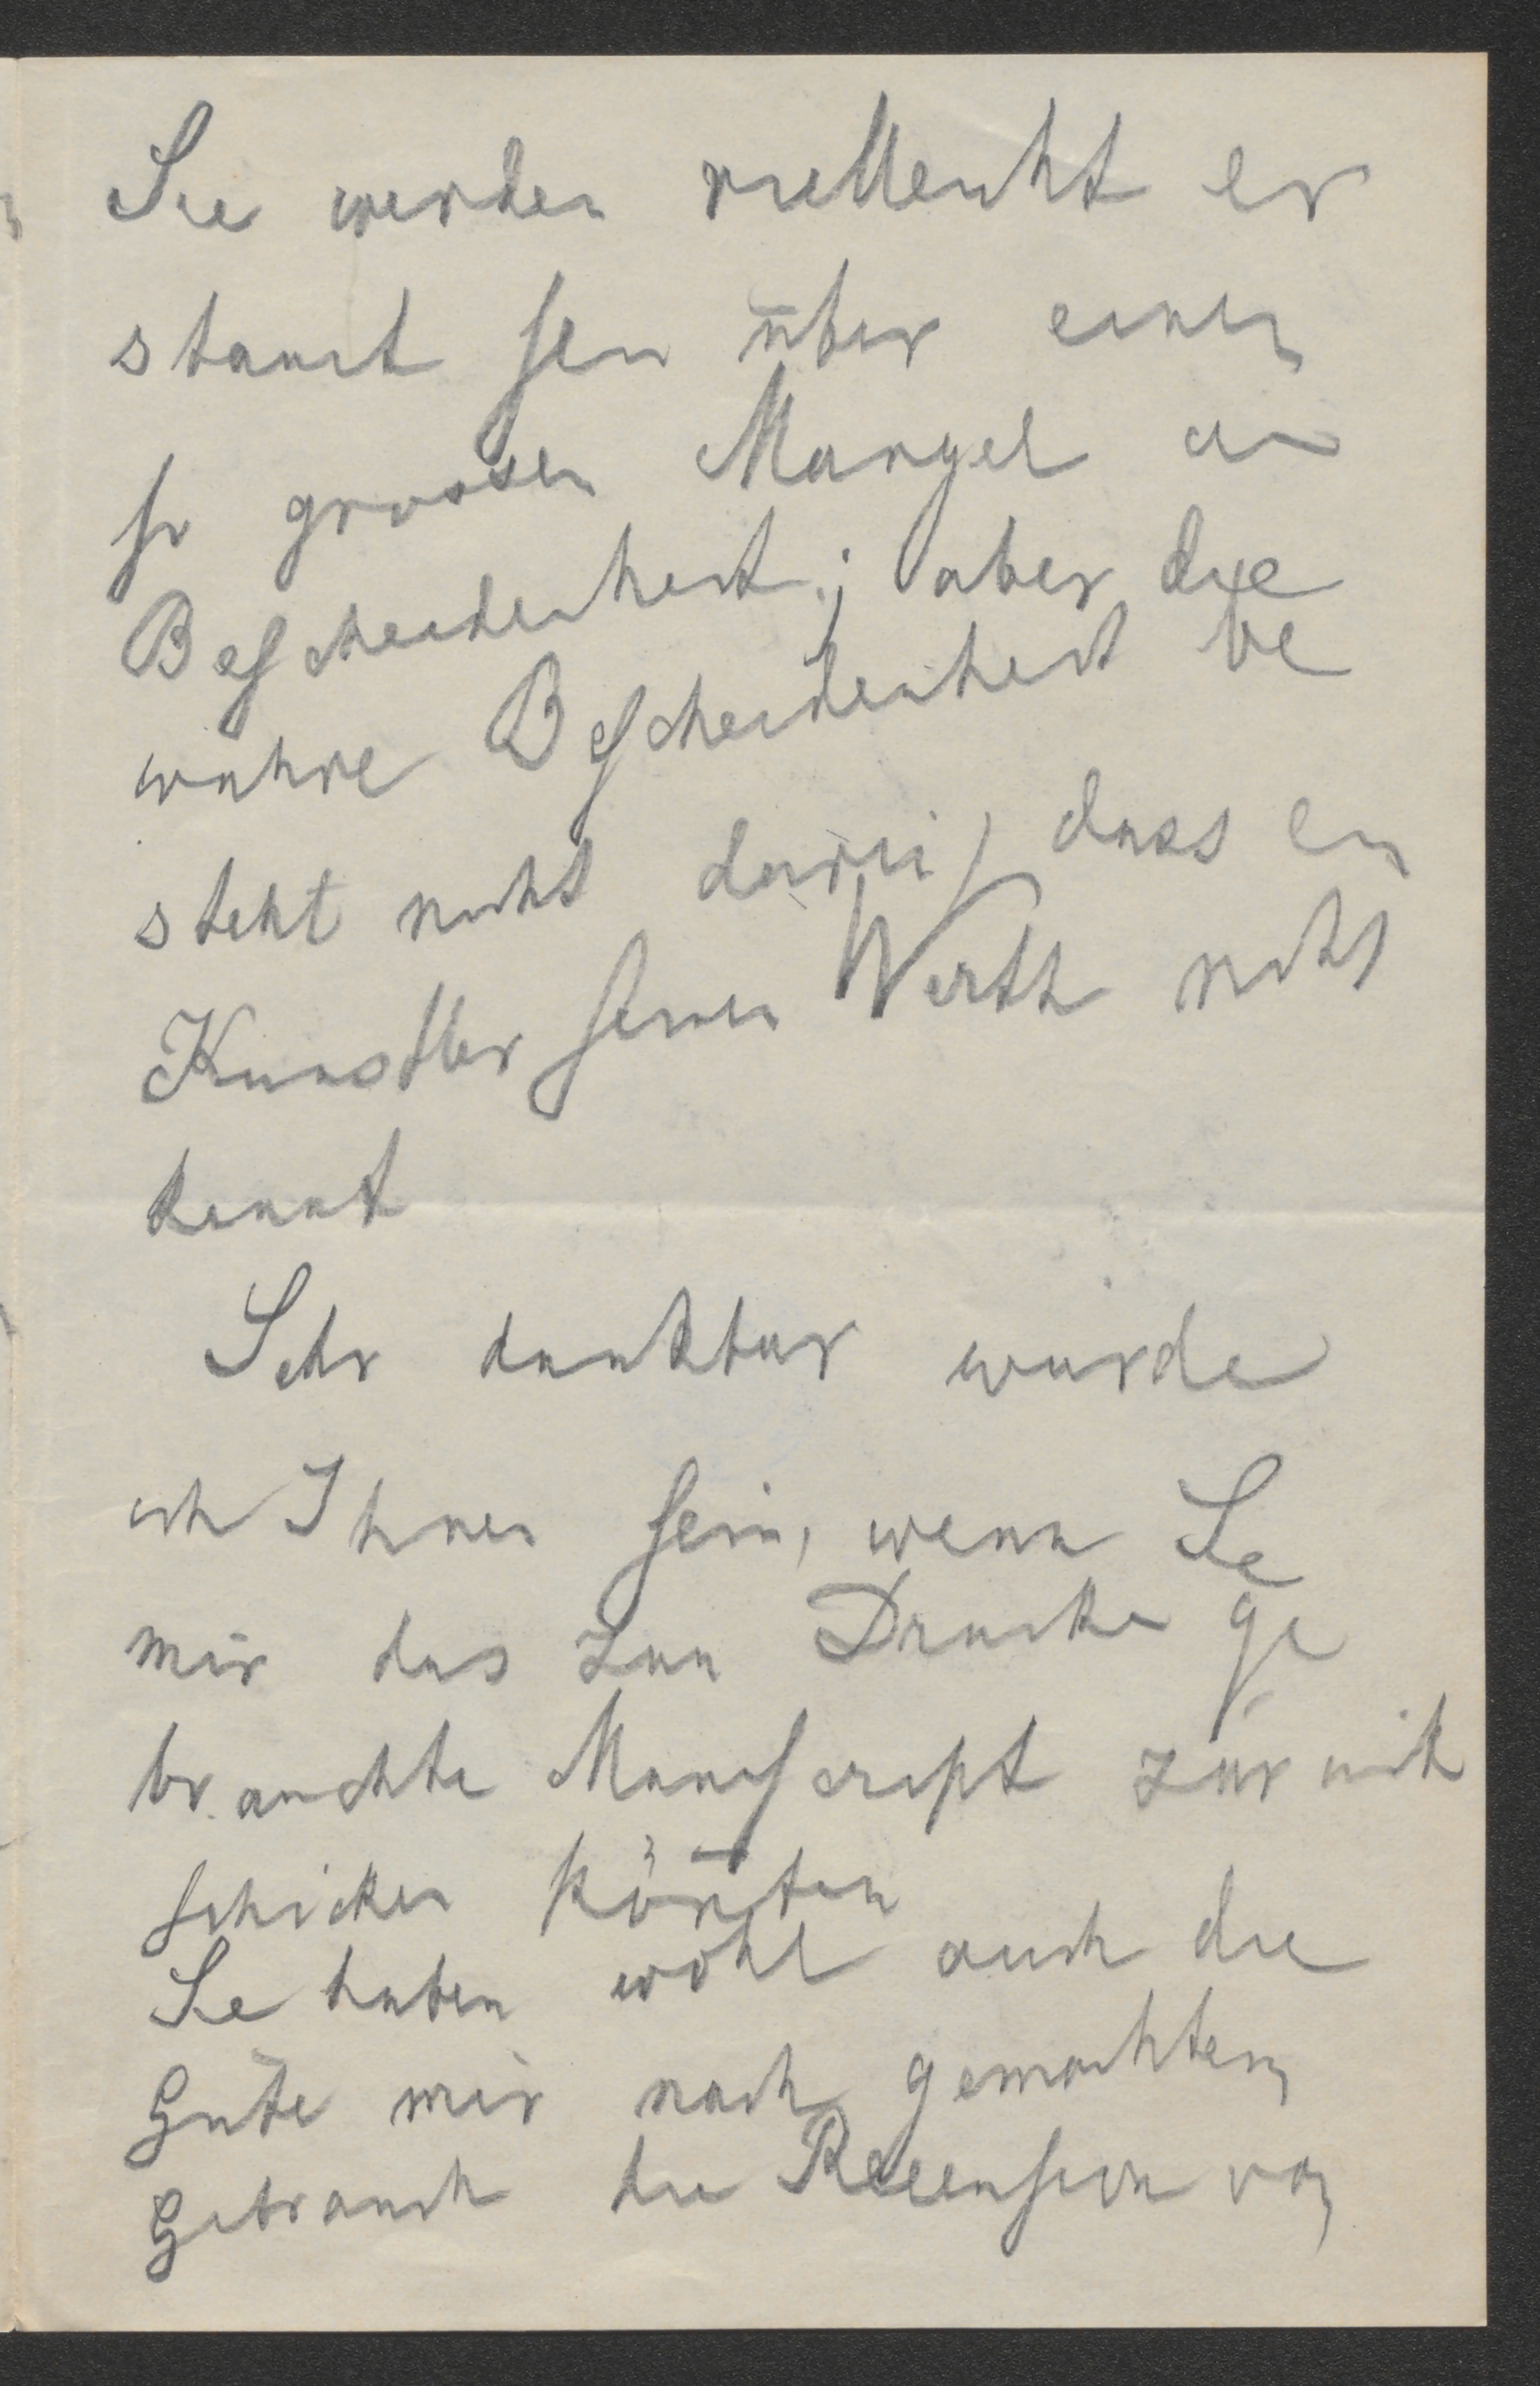 Sie werden vielleicht er
staunt sein über einen
so grossen Mangel an
Bescheidenheit; aber die
wahre Bescheidenheit be
steht nicht darin, dass ein
Künstler seinen Werth nicht
kennt
Sehr dankbar würde
ich Ihnen sein, wenn Sie
mir das zum Drucke ge
brauchte Manuscript zurück
schicken könnten
Sie haben wohl auch die
Güte mir nach gemachtem
Gebrauch die Recension von